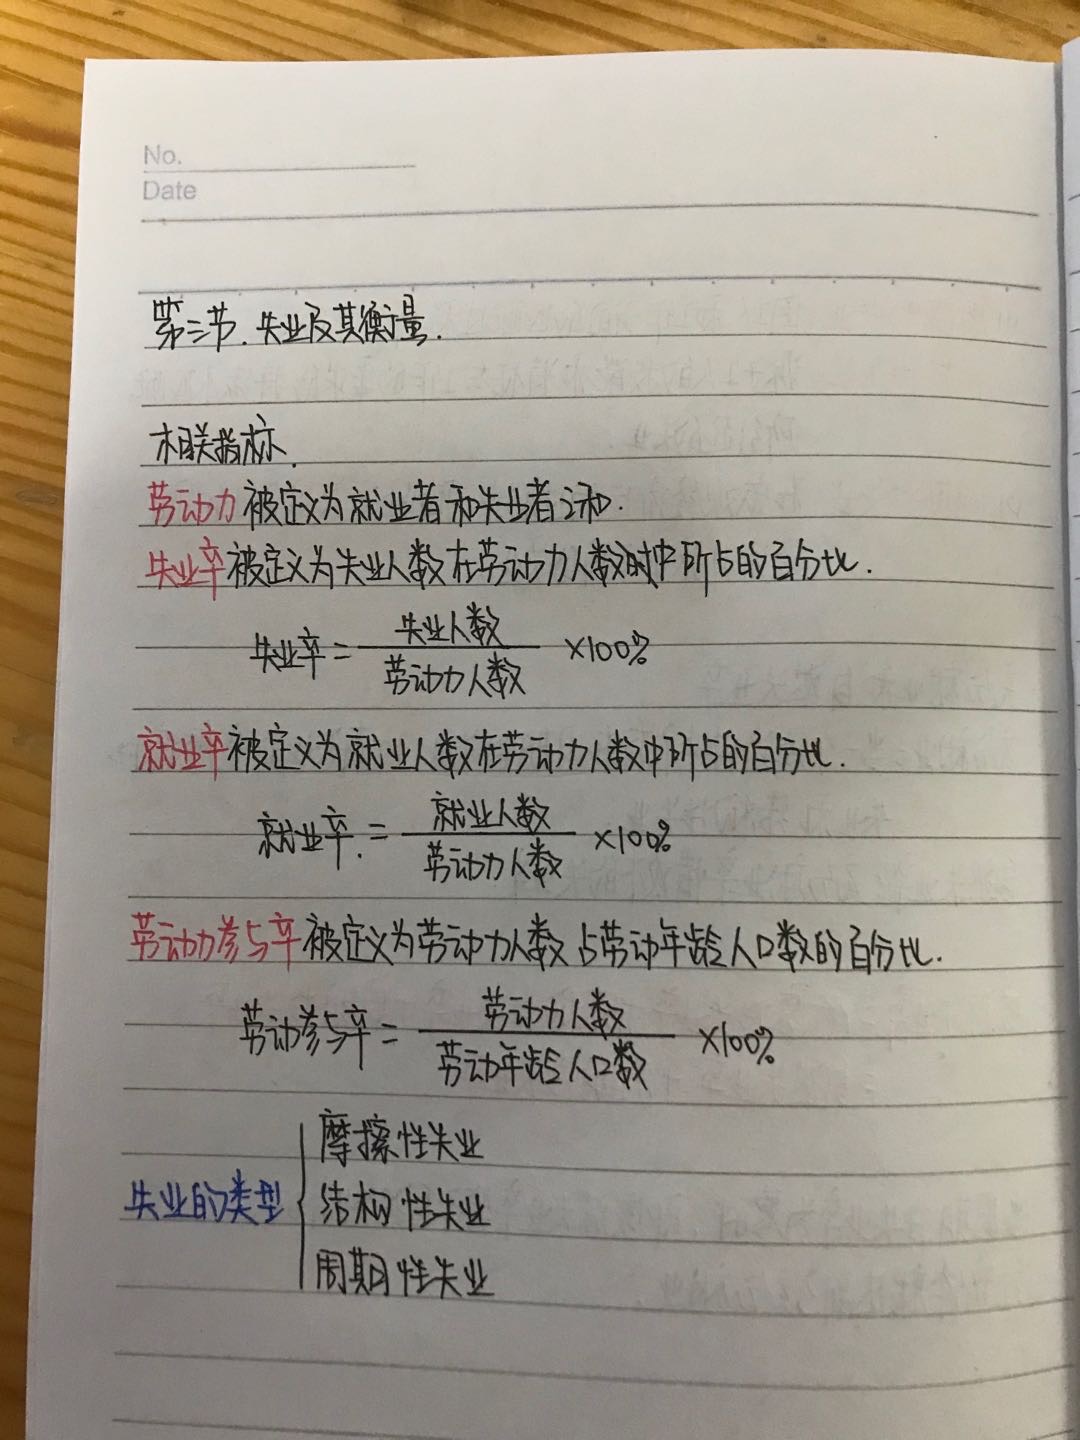 No.
Date
第三节. 失业及其衡量.
相关指标.
劳动力被定义为就业者和失业者之和.
失业率被定义为失业人数在劳动力人数中所占的百分比.
失业率 = 失业人数 / 劳动力人数 ×100%
就业率被定义为就业人数在劳动力人数中所占的百分比.
就业率. = 就业人数 / 劳动力人数 ×100%
劳动力参与率被定义为劳动力人数占劳动年龄人口数的百分比.
劳动参与率 = 劳动力人数 / 劳动年龄人口数 ×100%
失业的类型 { 摩擦性失业
结构性失业
周期性失业